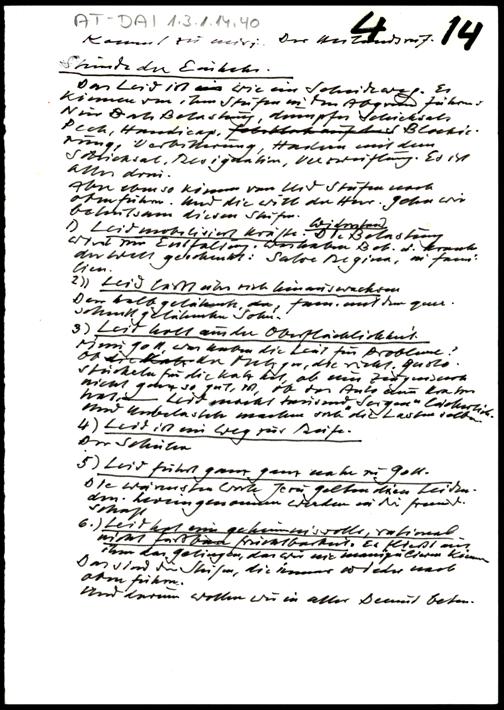 AT-DAI 1.3.1.14.40
4 14
Kommt zu mir. Der Heilandsruf.
Stunde der Einkehr.
Das Leid ist wie ein Scheideweg. Es
können von ihm Stufen in den Abgrund führen:
Nur Belastung, dumpfes Schicksal
Pech, Handicap, Blockie-
rung, Verbitterung, Hadern mit dem
Schicksal, Resignation, Verzweiflung. Es ist
alles drin.
Aber ebenso können vom Leid Stufen nach
oben führen. Und die will der Herr. Gehen wir
behutsam diesen Stufen.
1) Leid mobilisiert Kräfte. Die Belastung
wird zur Entfaltung. Beh. u. Kranke
der Welt geschenkt: Salve Regina, in fami-
lien.
2) Leid läßt über sich hinauswachsen
Der halb gelähmte, da, fam. mit dem quer-
schnittgelähmten Sohn.
3) Leid holt aus der Oberflächlichkeit.
Mein Gott, was haben die Leut für Probleme?
Ob die richt.
für die hat, ob ein
nicht ganz so gut ist, ob das Auto einen Kratzer
hat. Leid macht tausend "Sorgen" lächerlich.
Und Unbelastete machen sich die Lasten selber.
4) Leid ist ein Weg zur Reife.
Der Schüler
5) Leid führt ganz ganz nahe zu Gott.
Die wärmsten Worte Jesu gelten dem Leiden-
den. hereingenommen werden in die Freund-
schaft
6.) Leid hat eine geheimnisvolle, rational
nicht faßbare Fruchtbarkeit. Es fließt aus
ihm das Gelingen, das wir nie können
Das sind die Stufen, die immer wieder nach
oben führen.
Und darum wollen wir in aller Demut beten.